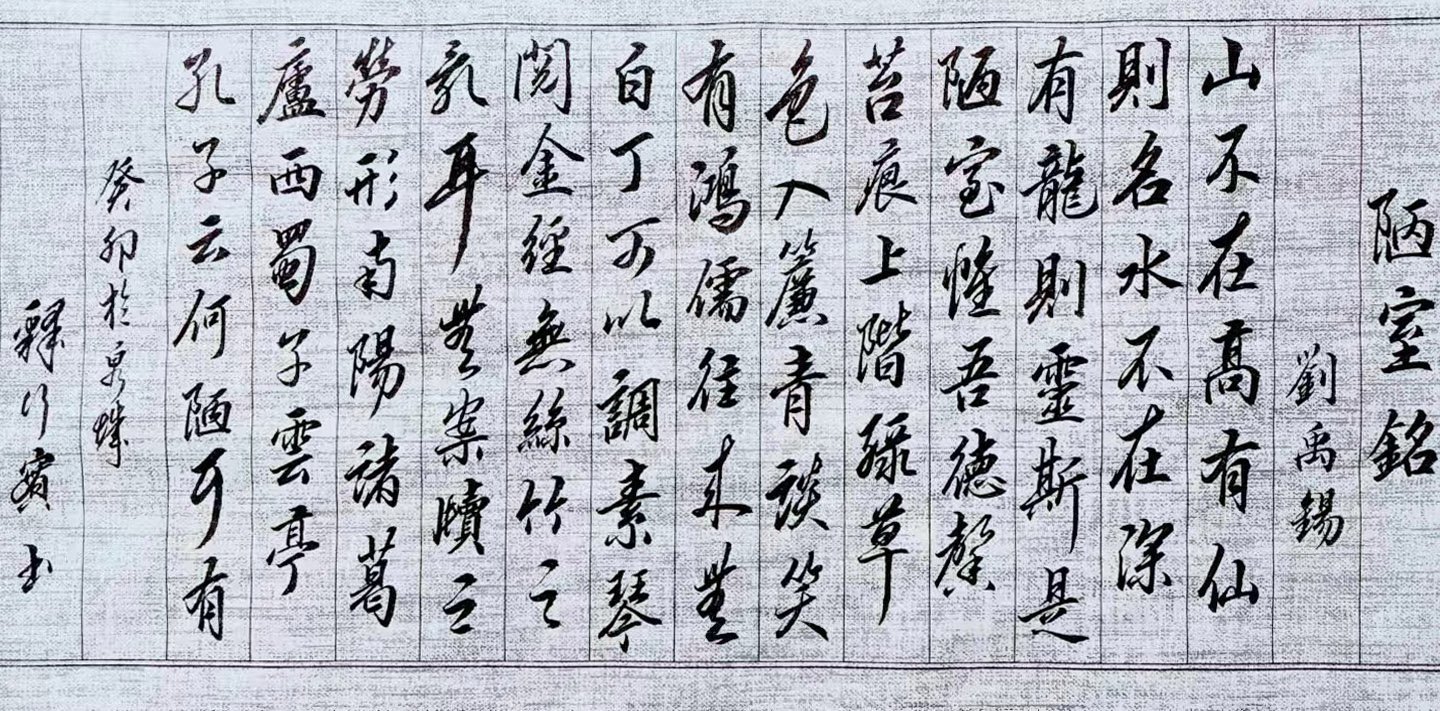 陋室銘
劉禹錫
山不在高有仙
則名水不在深
有龍則靈斯是
陋室惟吾德馨
苔痕上階綠草
色入簾青談笑
有鴻儒往來無
白丁可以調素琴
閱金經無絲竹之
亂耳無案牘之
勞形南陽諸葛
廬西蜀子雲亭
孔子云何陋之有
癸卯於泉城
釋行賓书